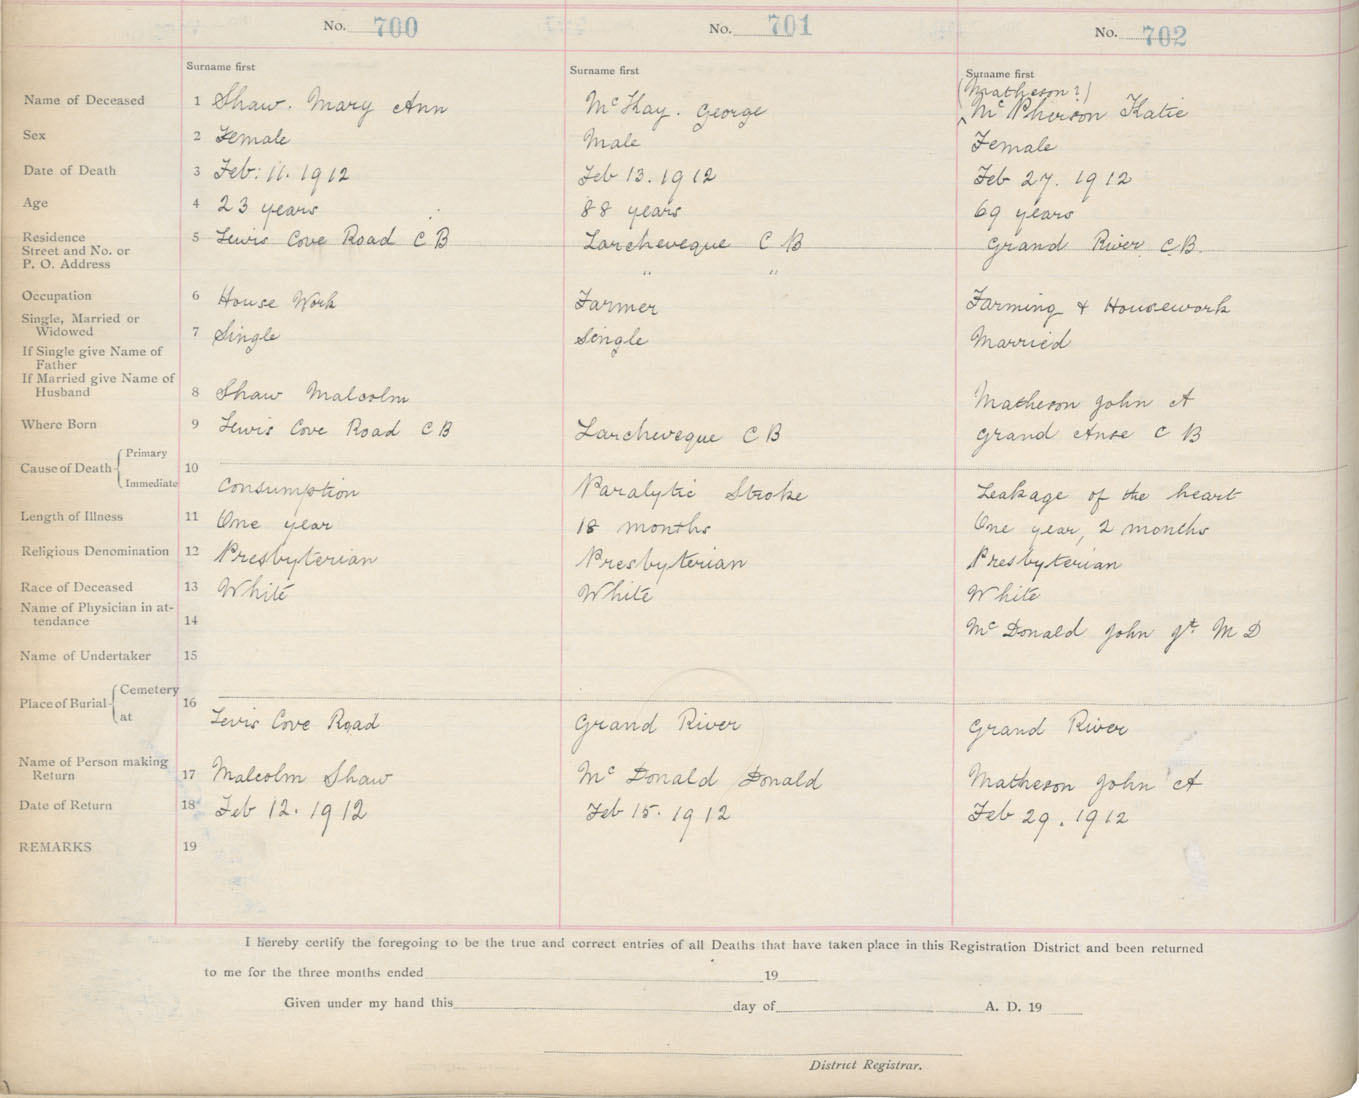 No. 700 No. 701 No. 702
Surname first Surname first Surname first
(Matheson?)
Name of Deceased 1 Shaw. Mary Ann McKay. George McPherson Katie
Sex 2 Female Male Female
Date of Death 3 Feb. 11. 1912 Feb 13. 1912 Feb 27. 1912
Age 4 23 years 88 years 69 years
Residence 5 Lewis Cove Road C B Larcheveque C B Grand River C.B.
Street and No. or
P. O. Address " "
Occupation 6 House Work Farmer Farming & Housework
Single, Married or
Widowed 7 Single Single Married
If Single give Name of
Father
If Married give Name of
Husband 8 Shaw Malcolm Matheson John A
Where Born 9 Lewis Cove Road C B Larcheveque C B Grand Anse C B
Cause of Death Primary 10
Immediate Consumption Paralytic Stroke Leakage of the heart
Length of Illness 11 One year 18 months One year, 2 months
Religious Denomination 12 Presbyterian Presbyterian Presbyterian
Race of Deceased 13 White White White
Name of Physician in at-
tendance 14 McDonald John Jt. M D
Name of Undertaker 15
Place of Burial Cemetery 16
at Lewis Cove Road Grand River Grand River
Name of Person making
Return 17 Malcolm Shaw McDonald Donald Matheson John A
Date of Return 18 Feb 12. 1912 Feb 15. 1912 Feb 29. 1912
REMARKS 19
I hereby certify the foregoing to be the true and correct entries of all Deaths that have taken place in this Registration District and been returned
to me for the three months ended 19
Given under my hand this day of A. D. 19
District Registrar.